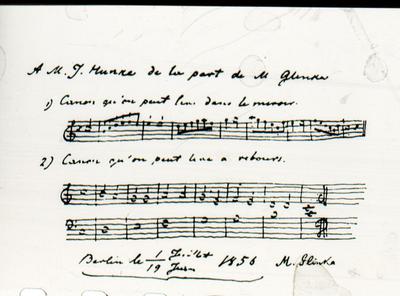 A M. J. Hunke de la part de M Glinka
1) Canon qu'on peut lire dans le miroir.
2) Canon qu'on peut lire a rebours.
Berlin le 1/19 Juillet/Juin 1856 M. Glinka